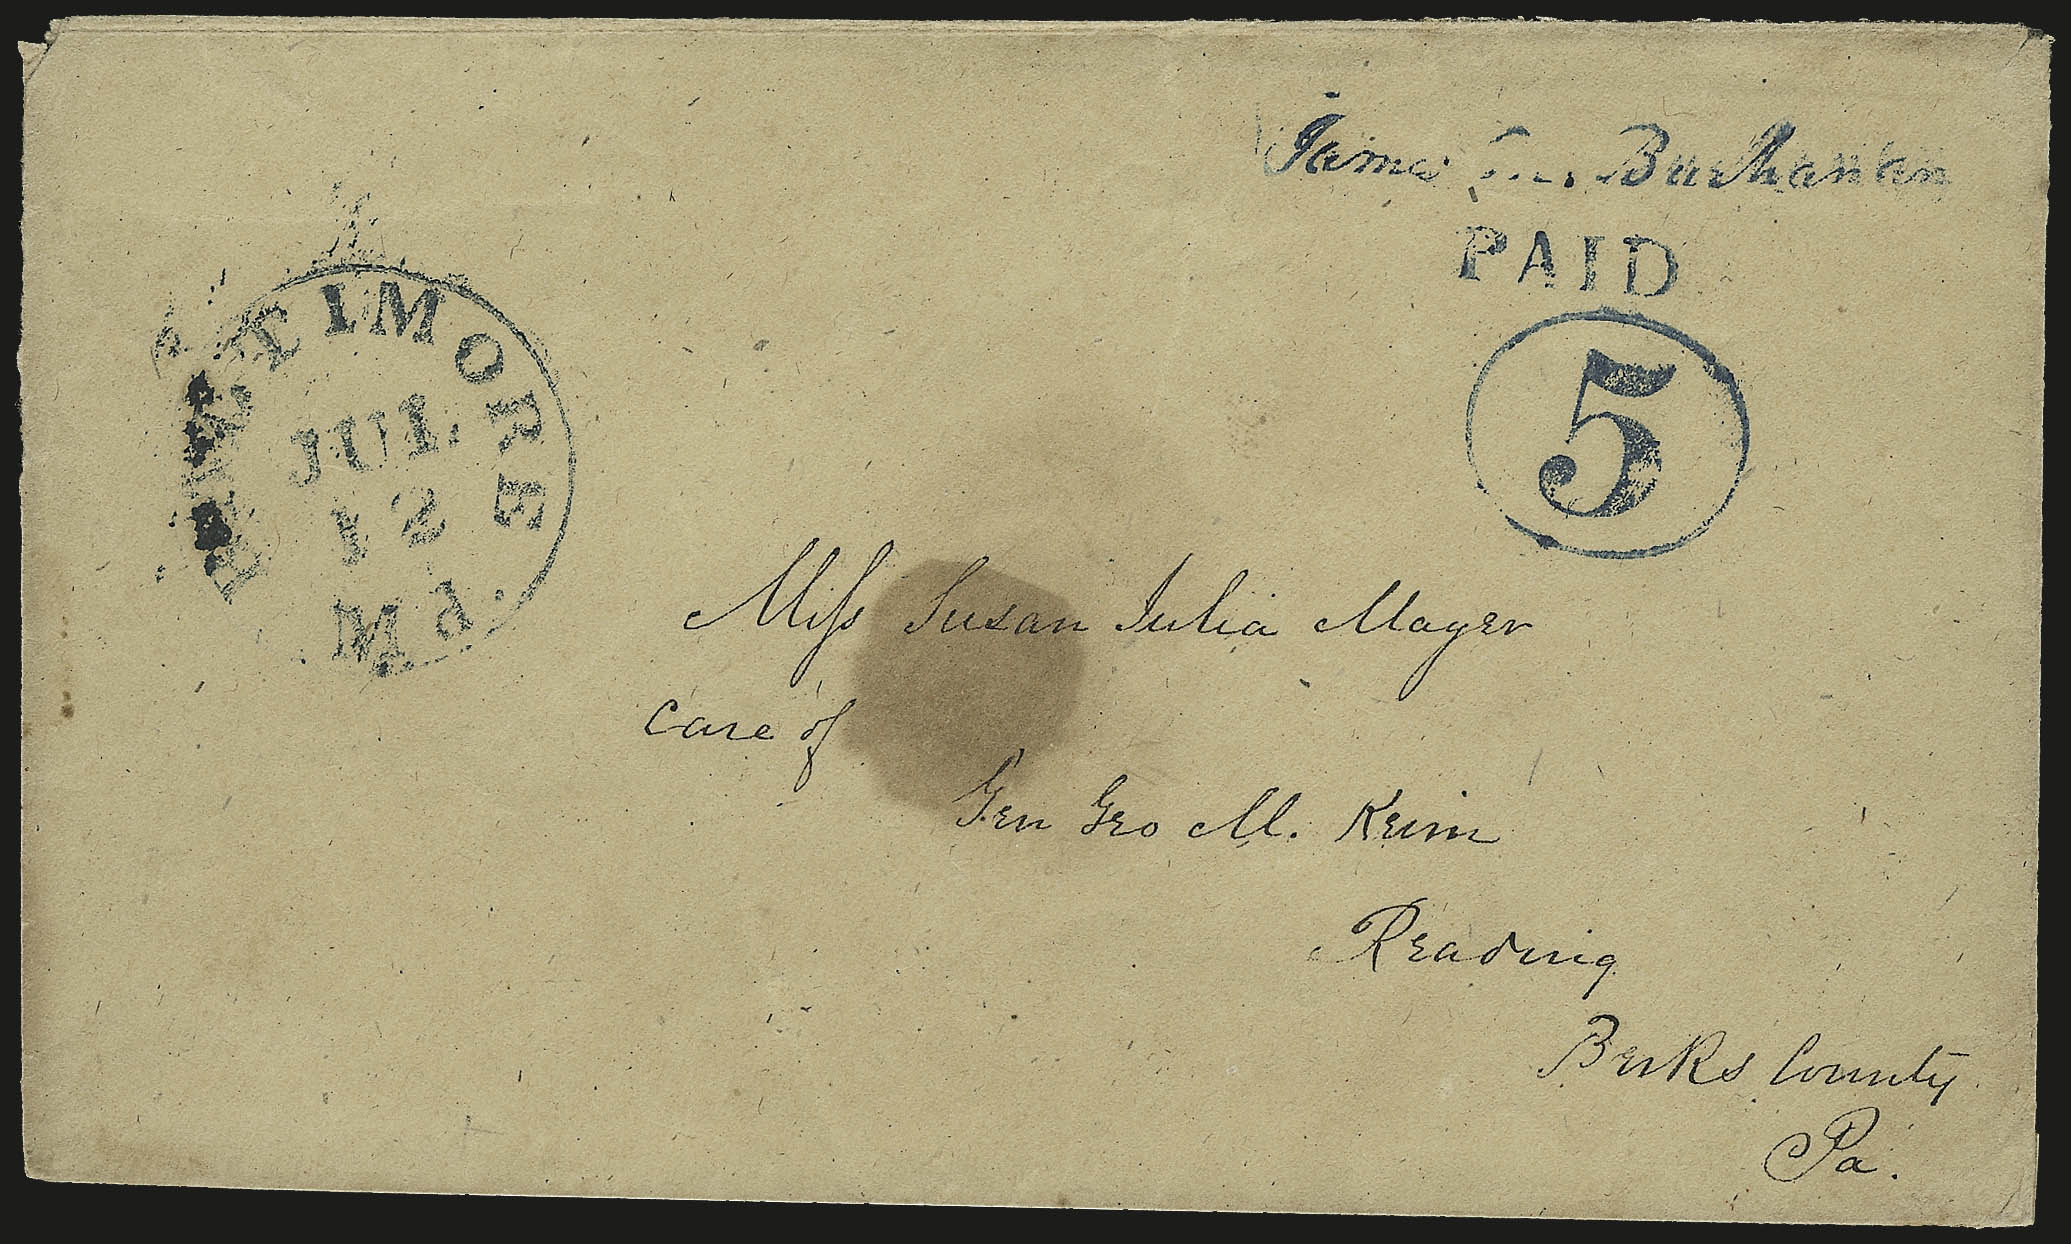 James Buchanan
PAID
5
BALTIMORE
JUL
12
Md.
Miss Susan Julia Mayer
Care of
Gen Geo M. Keim
Reading
Berks County
Pa.